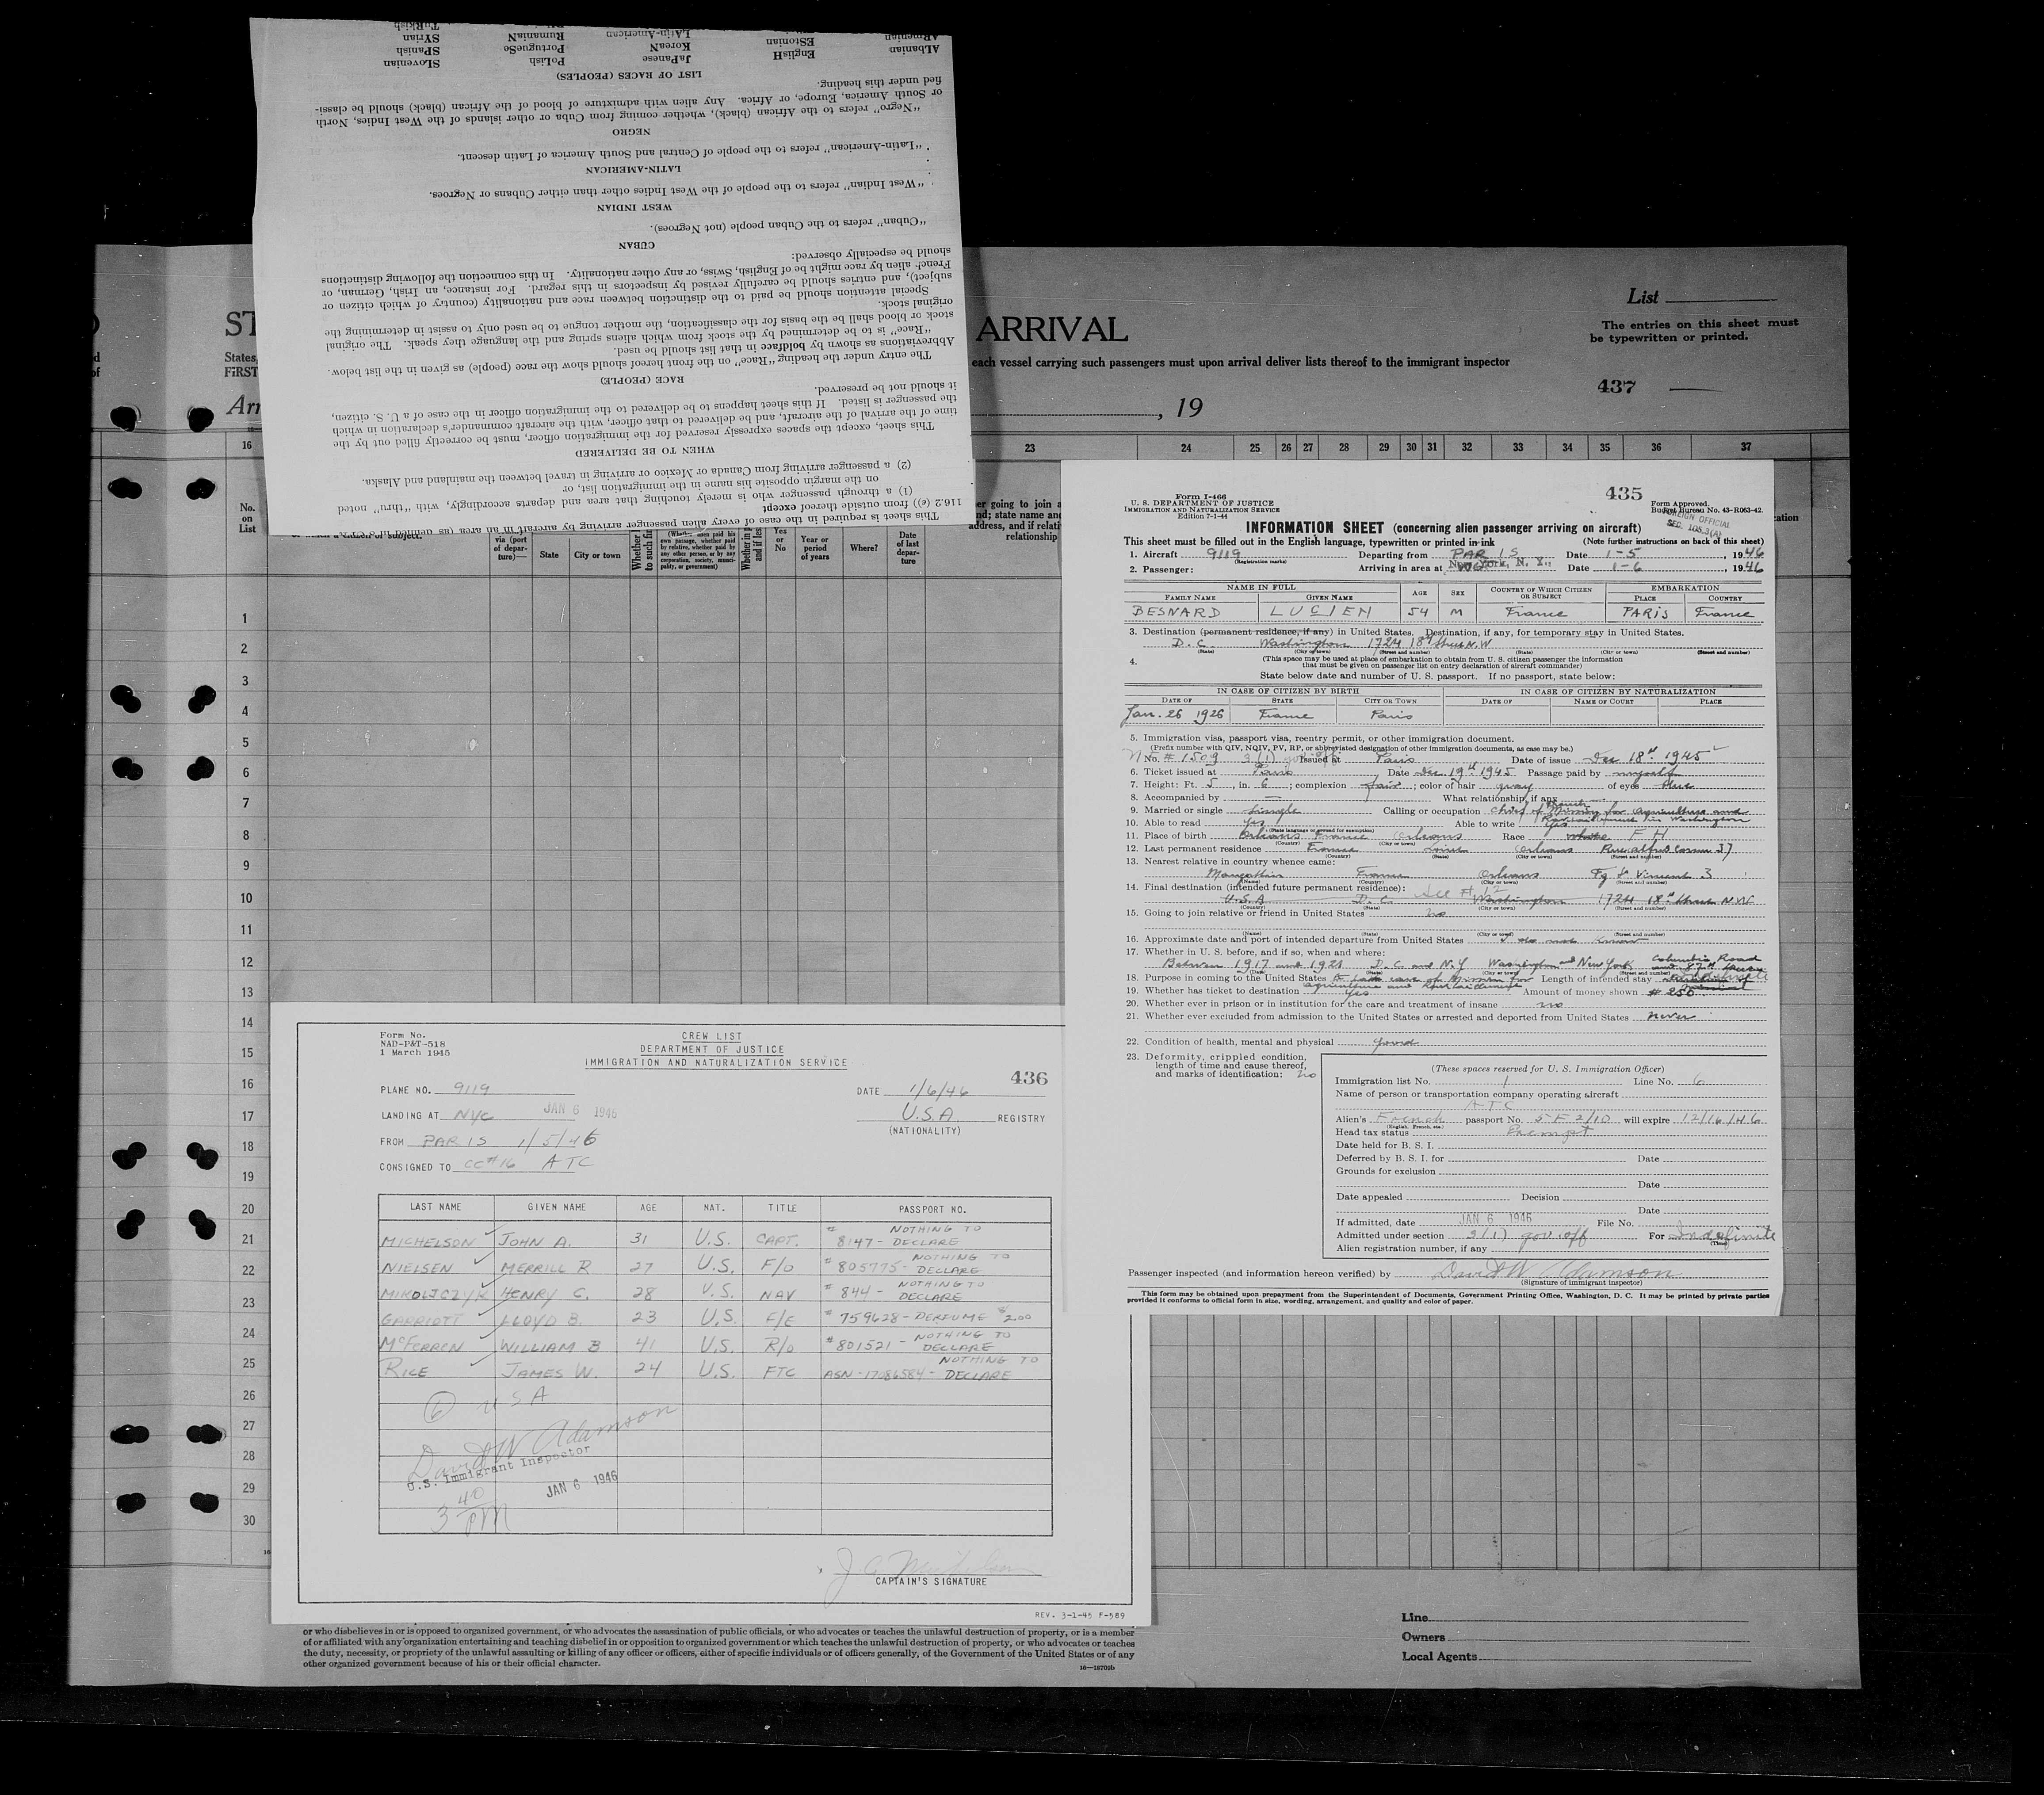 SLOvenian
SPanish
SYrian
TuRkish
POrtugueSe
RUmaniaN
JaPanese
KoreaN
LAtin-American
EnglisH
EStonian
ALbanian
ARmenian
LIST OF RACES (PEOPLES)
"Negro" refers to the African (black), whether coming from Cuba or other islands of the West Indies, North
or South America, Europe, or Africa. Any alien with admixture of blood of the African (black) should be classi-
fied under this heading.
NEGRO
"Latin-American" refers to the people of Central and South America of Latin descent.
LATIN-AMERICAN
"West Indian" refers to the people of the West Indies other than either Cubans or Negroes.
WEST INDIAN
"Cuban" refers to the Cuban people (not Negroes).
CUBAN
Special attention should be paid to the distinction between race and nationality (country of which citizen or
subject), and entries should be carefully revised by inspectors in this regard. For instance, an Irish, German, or
French alien by race might be of English, Swiss, or any other nationality. In this connection the following distinctions
should be especially observed:
"Race" is to be determined by the stock from which aliens spring and the language they speak. The original
stock or blood shall be the basis for the classification, the mother tongue to be used only to assist in determining the
original stock.
The entry under the heading "Race" on the front hereof should show the race (people) as given in the list below.
Abbreviations as shown by boldface in that list should be used.
RACE (PEOPLE)
This sheet, except the spaces expressly reserved for the immigration officer, must be correctly filled out by the
time of the arrival of the aircraft, and be delivered to that officer, with the aircraft commander's declaration in which
the passenger is listed. If this sheet happens to be delivered to the immigration officer in the case of a U. S. citizen,
it should not be preserved.
WHEN TO BE DELIVERED
(2) a passenger arriving from Canada or Mexico or arriving in travel between the mainland and Alaska.
(1) a through passenger who is merely touching that area and departs accordingly, with "thru" noted
on the margin opposite his name in the immigration list, or
116.2 (e)) from outside thereof except
This sheet is required in the case of every alien passenger arriving by aircraft in an area (as defined in
ST
ARRIVAL
List
The entries on this sheet must
be typewritten or printed.
States,
FIRST
each vessel carrying such passengers must upon arrival deliver lists thereof to the immigrant inspector
437
Arr
, 19
16 23 24 25 26 27 28 29 30 31 32 33 34 35 36 37
No. on List
via (port of depar- ture)—
State
City or town
Yes or No
Year or period of years
Where?
Date of last depar- ture
1
2
3
4
5
6
7
8
9
10
11
12
13
14
15
16
17
18
19
20
21
22
23
24
25
26
27
28
29
30
Form I-466
U. S. DEPARTMENT OF JUSTICE
IMMIGRATION AND NATURALIZATION SERVICE
Edition 7-1-44
435
Form Approved.
Budget Bureau No. 43-R063-42.
INFORMATION SHEET (concerning alien passenger arriving on aircraft)
This sheet must be filled out in the English language, typewritten or printed in ink (Note further instructions on back of this sheet)
1. Aircraft 9119 (Registration marks) Departing from PARIS Date 1-5, 1946
2. Passenger: Arriving in area at New York, N. Y., Date 1-6, 1946
NAME IN FULL AGE SEX COUNTRY OF WHICH CITIZEN OR SUBJECT EMBARKATION
FAMILY NAME GIVEN NAME PLACE COUNTRY
BESNARD LUCIEN 54 M France PARIS France
3. Destination (permanent residence, if any) in United States. Destination, if any, for temporary stay in United States.
D.C. Washington 1724 18th Street N.W
(State) (City or town) (Street and number) (State) (City or town) (Street and number)
4. (This space may be used at place of embarkation to obtain from U. S. citizen passenger the information
that must be given on passenger list on entry declaration of aircraft commander)
State below date and number of U. S. passport. If no passport, state below:
IN CASE OF CITIZEN BY BIRTH IN CASE OF CITIZEN BY NATURALIZATION
DATE OF STATE CITY OR TOWN DATE OF NAME OF COURT PLACE
Jan. 26 1926 France Paris
5. Immigration visa, passport visa, reentry permit, or other immigration document.
(Prefix number with QIV, NQIV, PV, RP, or abbreviated designation of other immigration documents, as case may be.)
No. # 1509 3(1) Issued at Paris Date of issue Dec 18th 1945
6. Ticket issued at Paris Date Dec 19th 1945 Passage paid by myself
7. Height: Ft. 5, in. 6; complexion fair; color of hair gray of eyes blue
8. Accompanied by — What relationship, if any
9. Married or single Single Calling or occupation chief of French Mission for agriculture and
10. Able to read Yes Able to write Yes
11. Place of birth Orleans France Orleans Race white F H
12. Last permanent residence France Loiret Orleans
13. Nearest relative in country whence came:
France Orleans Fg St Vincent 3
14. Final destination (intended future permanent residence): See # 12
U.S.A D.C. Washington 1724 18th Street N.W.
15. Going to join relative or friend in United States no
16. Approximate date and port of intended departure from United States I do not know
17. Whether in U. S. before, and if so, when and where:
Between 1917 and 1921 D.C. and N.Y Washington and New York Columbia Road
18. Purpose in coming to the United States to take care of Mission for Length of intended stay
agriculture and
19. Whether has ticket to destination Yes Amount of money shown # 250
20. Whether ever in prison or in institution for the care and treatment of insane no
21. Whether ever excluded from admission to the United States or arrested and deported from United States never
22. Condition of health, mental and physical good
23. Deformity, crippled condition,
length of time and cause thereof,
and marks of identification: no
(These spaces reserved for U. S. Immigration Officer)
Immigration list No. 1 Line No. 6
Name of person or transportation company operating aircraft
ATC
Alien's French passport No. SF 2/10 will expire 12/16/46
(English, French, etc.)
Head tax status Exempt
Date held for B. S. I.
Deferred by B. S. I. for Date
Grounds for exclusion
Date
Date appealed Decision
Date
If admitted, date JAN 6 1946 File No.
Admitted under section 3(1) gov. off For Indefinite
(Time)
Alien registration number, if any
Passenger inspected (and information hereon verified) by David W Adamson
(Signature of immigrant inspector)
This form may be obtained upon prepayment from the Superintendent of Documents, Government Printing Office, Washington, D. C. It may be printed by private parties
provided it conforms to official form in size, wording, arrangement, and quality and color of paper.
Form No.
NAD-P&T-518
1 March 1945
CREW LIST
DEPARTMENT OF JUSTICE
IMMIGRATION AND NATURALIZATION SERVICE
436
PLANE NO. 9119 DATE 1/6/46
LANDING AT NYC JAN 6 1946 U.S.A. REGISTRY
(NATIONALITY)
FROM PARIS 1/5/46
CONSIGNED TO CC#16 ATC
LAST NAME GIVEN NAME AGE NAT. TITLE PASSPORT NO.
MICHELSON JOHN A. 31 U.S. CAPT. # 8147 - NOTHING TO DECLARE
NIELSEN MERRILL R 27 U.S. F/O # 805775 - NOTHING TO DECLARE
MIKOLJCZYK HENRY C. 28 U.S. NAV # 844 - NOTHING TO DECLARE
GARRIOTT LLOYD B. 23 U.S. F/E # 759628 - PERFUME $200
McFERREN WILLIAM B 41 U.S. R/O # 801521 - NOTHING TO DECLARE
RICE JAMES W. 24 U.S. FTC ASN-17086584 - NOTHING TO DECLARE
6 USA
David W Adamson
U.S. Immigrant Inspector
JAN 6 1946
3 40 PM
CAPTAIN'S SIGNATURE
REV. 3-1-45 F-589
or who disbelieves in or is opposed to organized government, or who advocates the assassination of public officials, or who advocates or teaches the unlawful destruction of property, or is a member
of or affiliated with any organization entertaining and teaching disbelief in or opposition to organized government or which teaches the unlawful destruction of property, or who advocates or teaches
the duty, necessity, or propriety of the unlawful assaulting or killing of any officer or officers, either of specific individuals or of officers generally, of the Government of the United States or of any
other organized government because of his or their official character.
16—18709b
Line
Owners
Local Agents